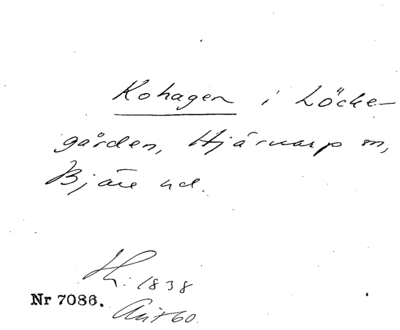 Kohagen i Löcke-
gården, Hjärnarp sn,
Bjäre hd.
H: 1838
Nr 7086.